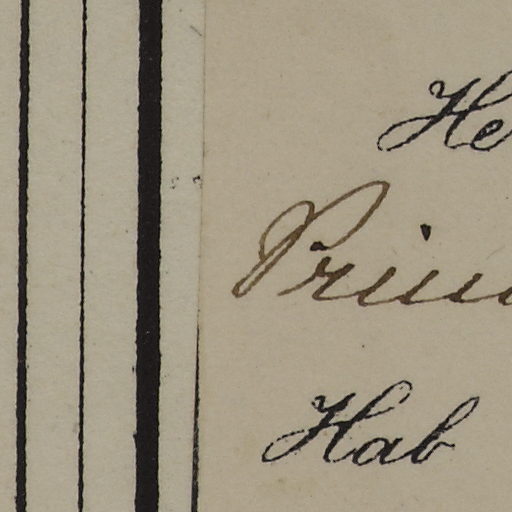 He
Prin
Hab